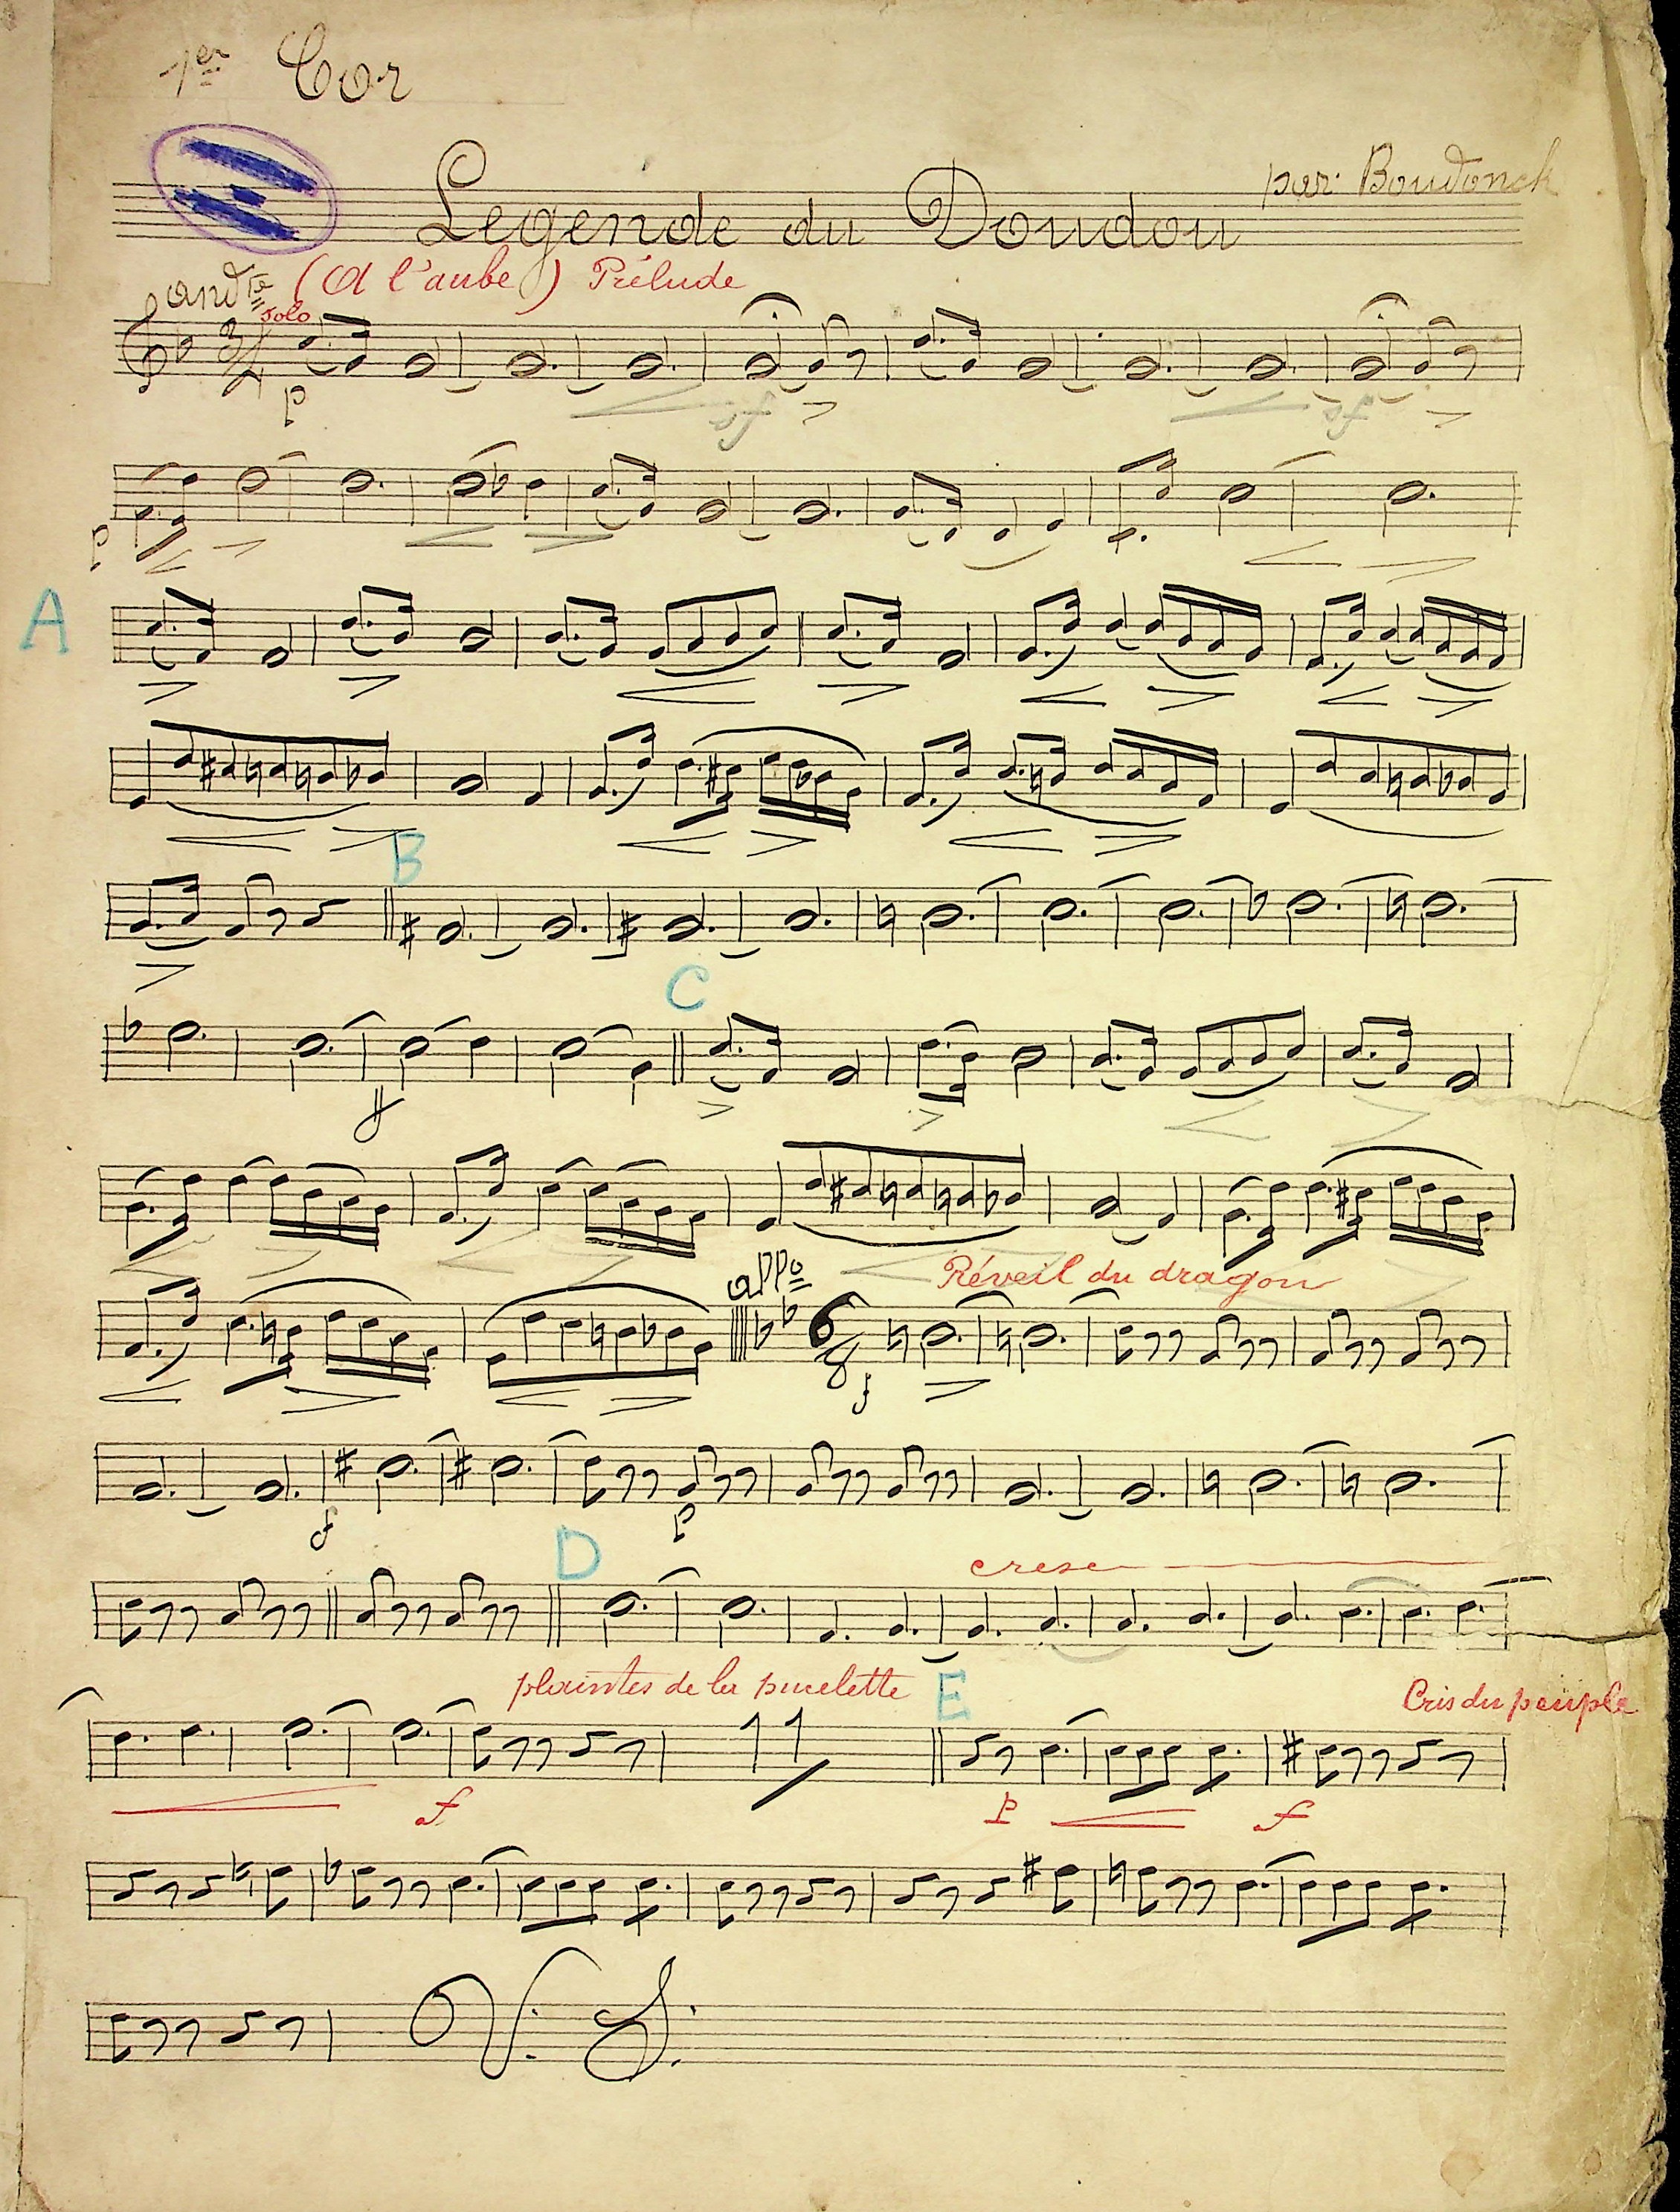 1er Cor
Legende du Doudou
par Boudonck
andte (A l'aube) Prélude
solo
3/4
p
p
A
B
C
f
allo
Réveil du dragon
6/8
f
f
p
D
cresc
plaintes de la pucelette
E
Cris du peuple
f
p
f
11
V. S.